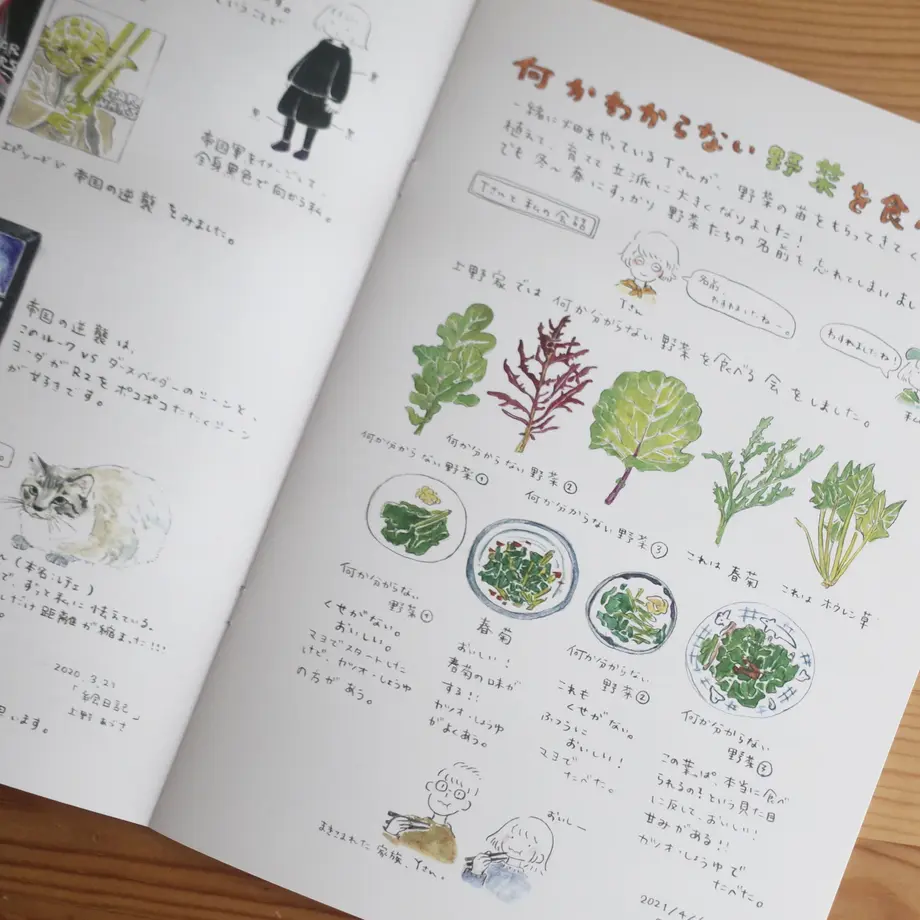 ということで
黒
黒
黒
帝国軍をイメージして、
全身黒色で向かう私。
エピソードⅤ 帝国の逆襲 をみました。
帝国の逆襲 は、
このルーク VS ダースベイダーのシーンと、
ヨーダが R2を ポコポコたたくシーン
が好きです。
で、ずっと私に怯えている。
だけ 距離が縮まった!!!
2020.3.21
「絵日記」
上野 あづさ
思います。
何かわからない野菜を食
一緒に畑をやっている Tさんが、野菜の苗をもらってきてく
植えて、育てて 立派に大きくなりました!
でも 冬〜春にすっかり 野菜たちの名前を忘れてしまいまし
Tさんと私の会話
名前、
わすれましたねー。
Tさん
わすれましたね!
私
上野家では 何か分からない野菜を食べる会をしました。
何か分からない野菜①
何か分からない野菜②
何か分からない野菜③
これは 春菊
これは ホウレン草
何か分からない
野菜①
くせがない。
おいしい。
マヨでスタートした
けど、カツオ・しょうゆ
の方が あう。
春菊
おいしい!
春菊の味が
する!!
カツオ・しょうゆ
がよくあう。
何か分からない
野菜②
これも
くせがない。
ふつうに
おいしい!
マヨで
たべた。
何か分からない
野菜③
この葉っぱ、本当に食べ
られるの?という見た目
に反して、おいしい!
甘みがある!!
カツオ・しょうゆで
たべた。
まきこまれた 家族 Yさん。
おいしー